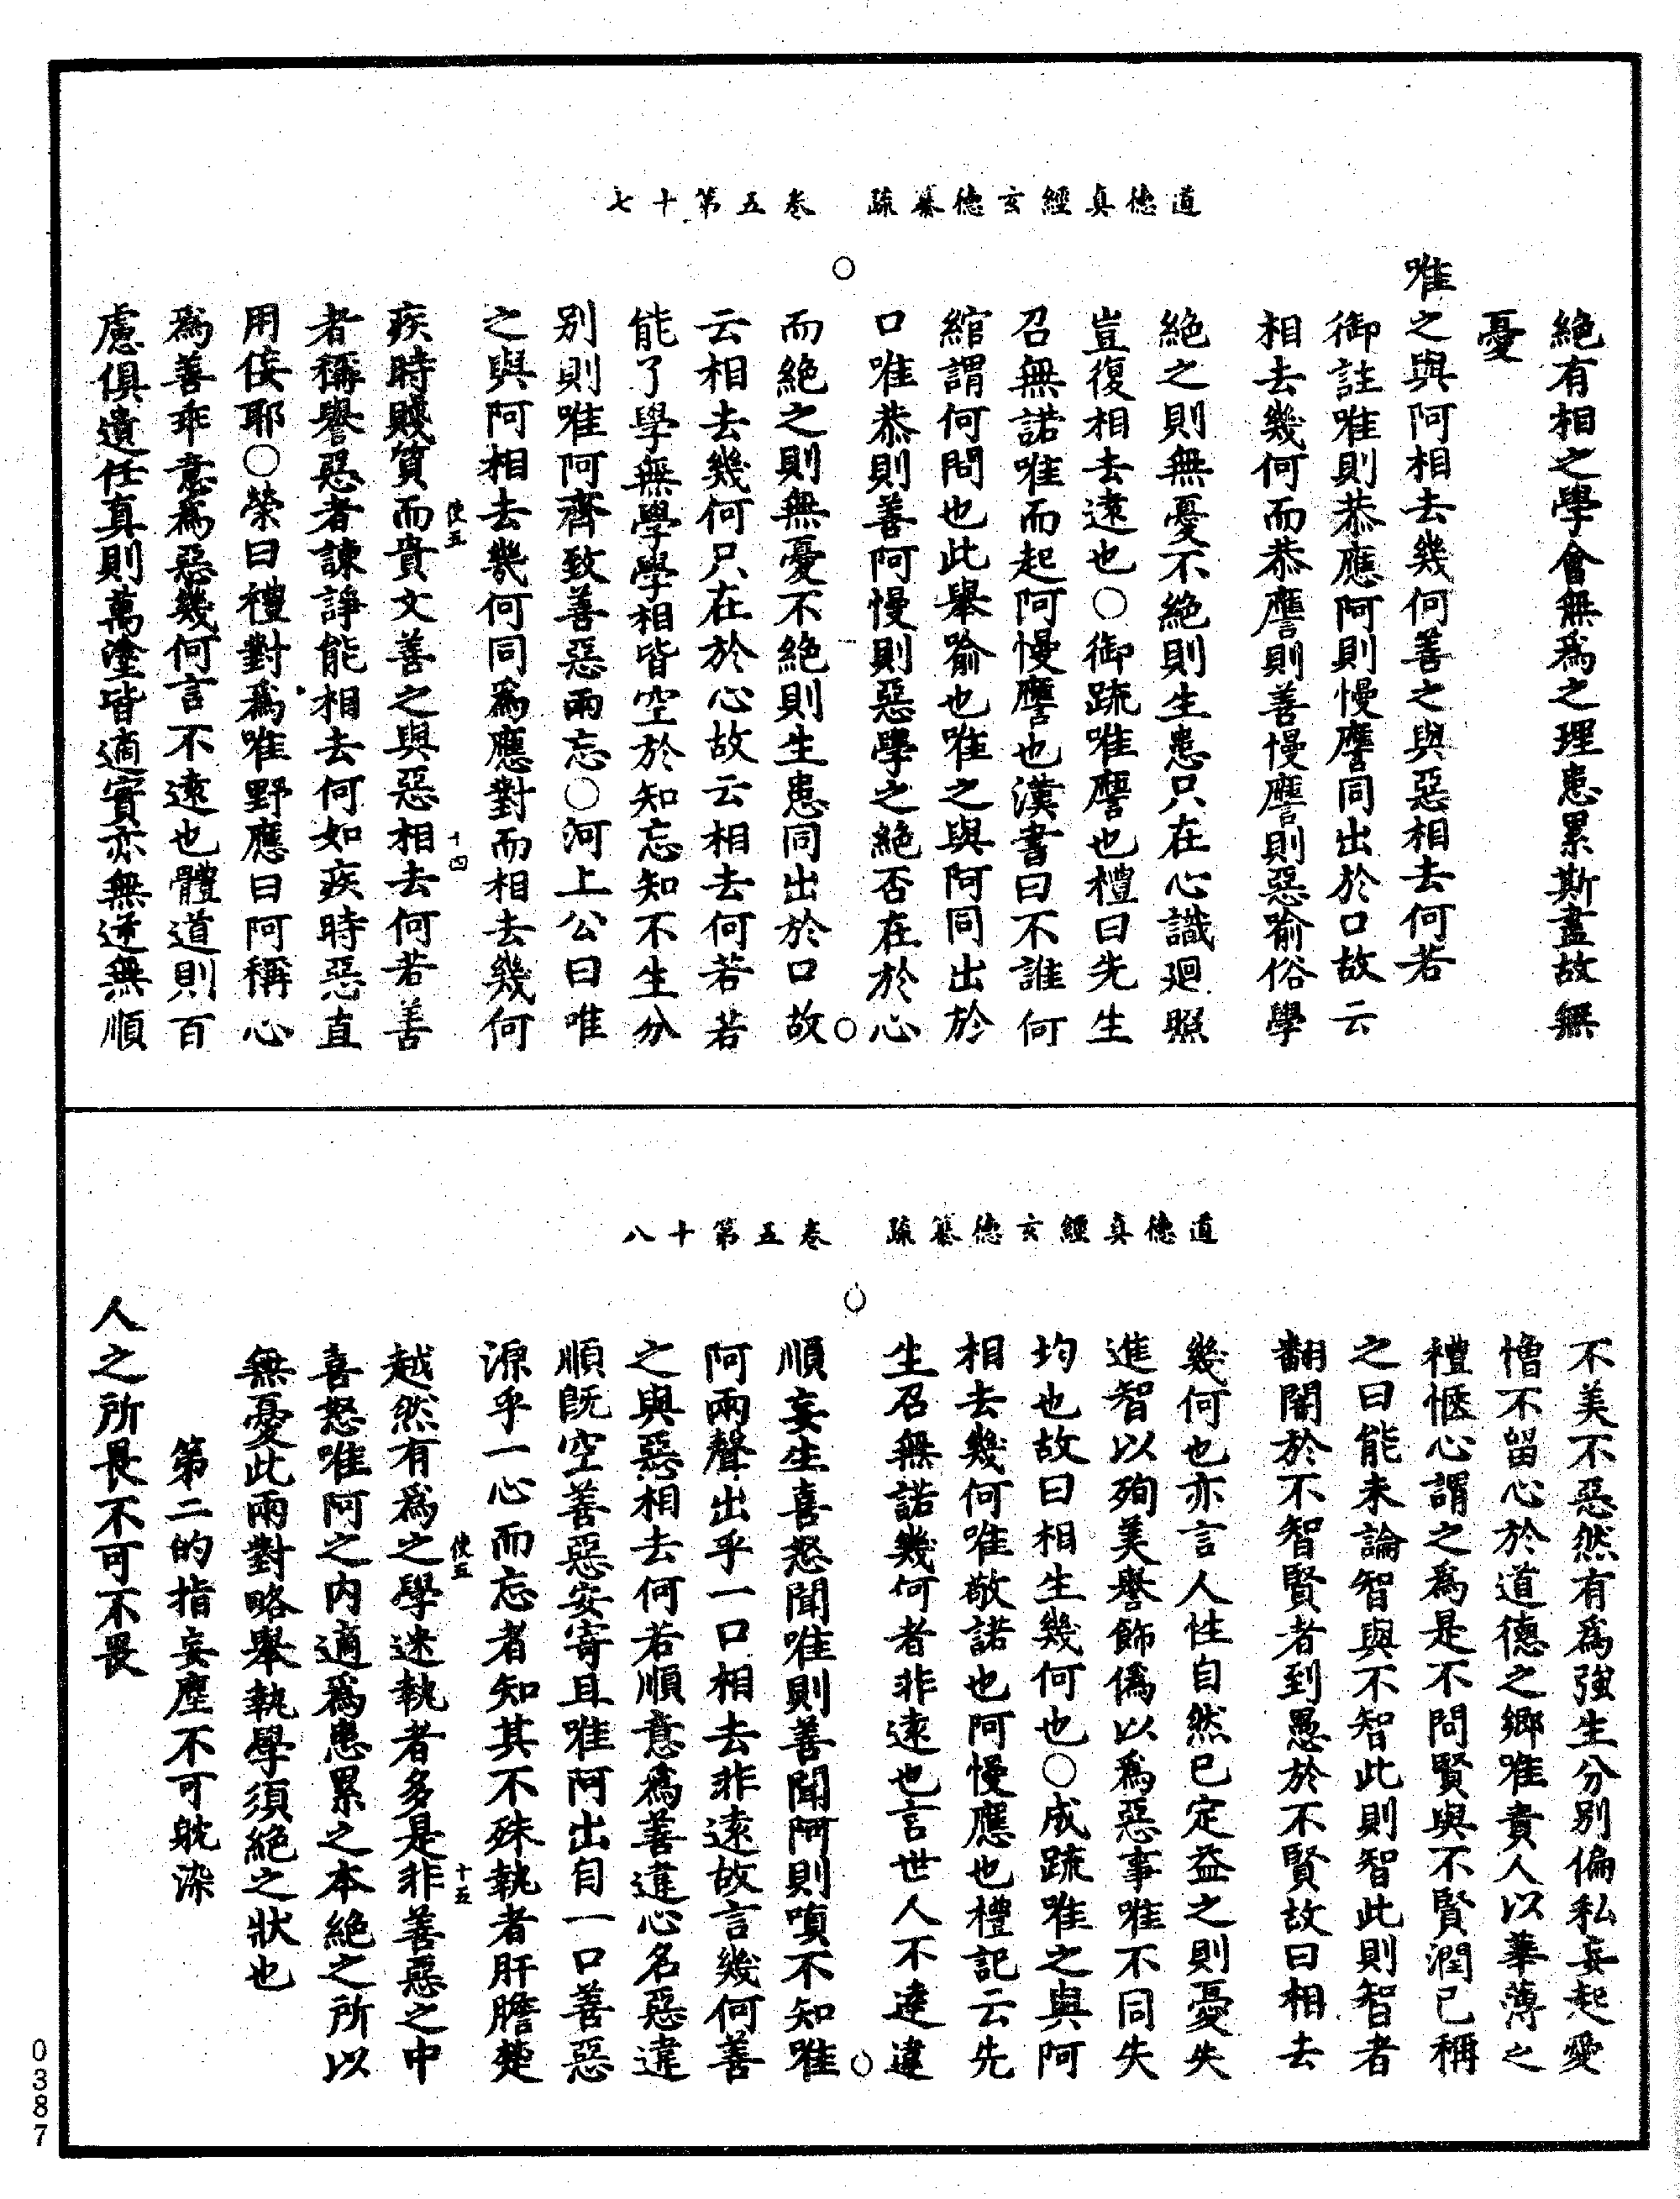 道德真經玄德纂疏　卷五第十七
絕有相之學會無爲之理患累斯盡故無
憂
唯之與阿相去幾何善之與惡相去何若
御註唯則恭應阿則慢譍同出於口故云
相去幾何而恭譍則善慢譍則惡喻俗學
絕之則無憂不絕則生患只在心識廻照
豈復相去遠也○御疏唯譍也禮曰先生
召無諾唯而起阿慢譍也漢書曰不誰何
綰謂何問也此舉喻也唯之與阿同出於
口唯恭則善阿慢則惡學之絕否在於心
而絕之則無憂不絕則生患同出於口故
云相去幾何只在於心故云相去何若若
能了學無學學相皆空於知忘知不生分
別則唯阿齊致善惡兩忘○河上公曰唯
之與阿相去幾何同爲應對而相去幾何
疾時賤質而貴文善之與惡相去何若善
者稱譽惡者諫諍能相去何如疾時惡直
用佞耶○榮曰禮對爲唯野應曰阿稱心
爲善乖意爲惡幾何言不遠也體道則百
慮俱遺任真則萬塗皆適實亦無逆無順
使五
十四
道德真經玄德纂疏　卷五第十八
不美不惡然有爲強生分別偏私妄起愛
憎不留心於道德之鄉唯責人以華薄之
禮愜心謂之爲是不問賢與不賢潤己稱
之曰能未論智與不智此則智此則智者
翻闇於不智賢者到愚於不賢故曰相去
幾何也亦言人性自然已定益之則憂失
進智以殉美譽飾僞以爲惡事唯不同失
均也故曰相生幾何也○成疏唯之與阿
相去幾何唯敬諾也阿慢應也禮記云先
生召無諾幾何者非遠也言世人不達違
順妄生喜怒聞唯則善聞阿則嗔不知唯
阿兩聲出乎一口相去非遠故言幾何善
之與惡相去何若順意爲善違心名惡違
順既空善惡安寄且唯阿出自一口善惡
源乎一心而忘者知其不殊執者肝膽楚
越然有爲之學迷執者多是非善惡之中
喜怒唯阿之内適爲患累之本絕之所以
無憂此兩對略舉執學須絕之狀也
第二的指妄塵不可躭染
人之所畏不可不畏
使五
十五
0387